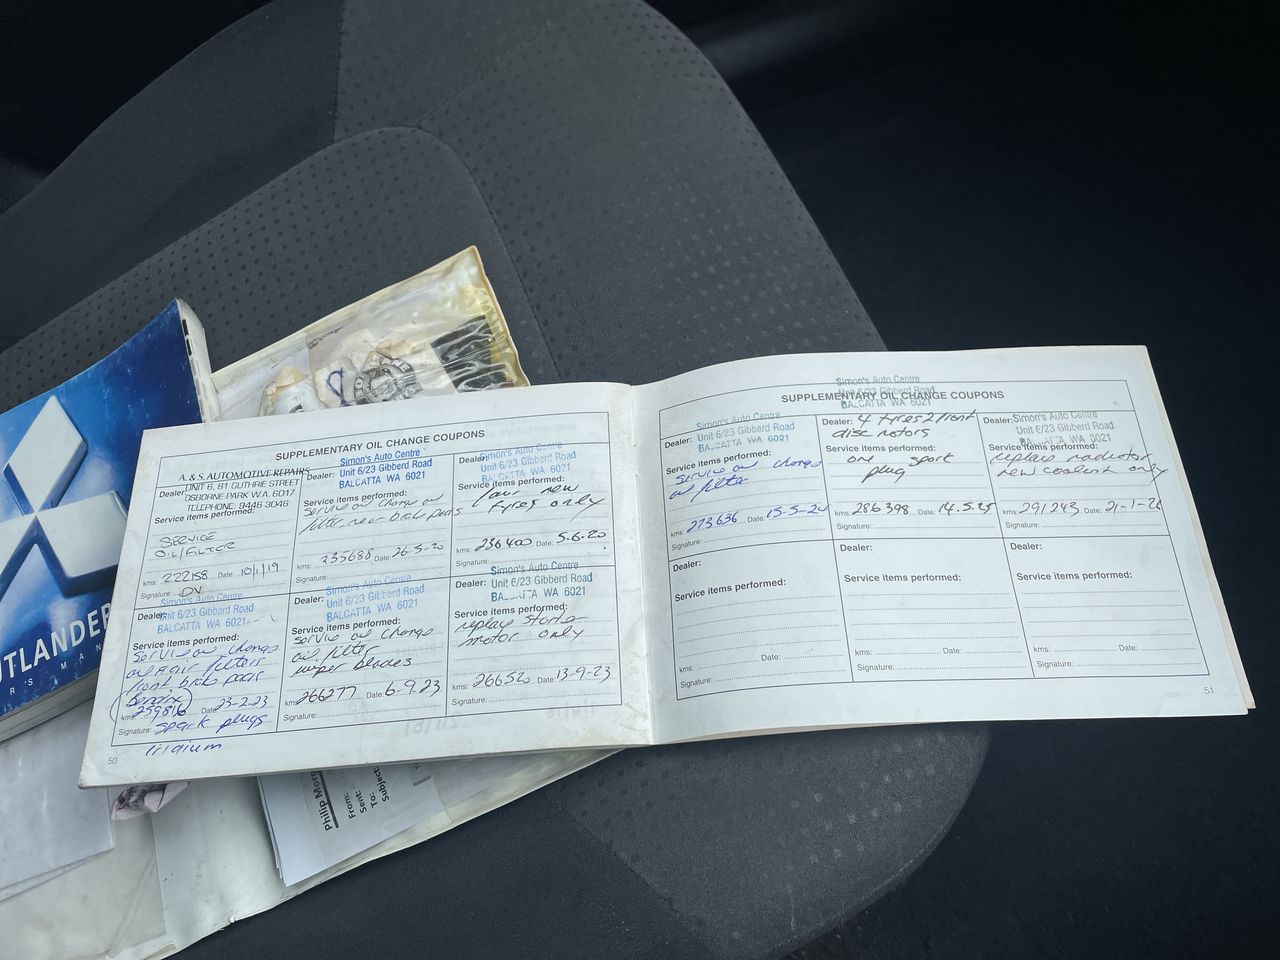 SUPPLEMENTARY OIL CHANGE COUPONS
A. & S. AUTOMOTIVE REPAIRS
UNIT 6, 81 GUTHRIE STREET
Dealer:
OSBORNE PARK W.A. 6017
TELEPHONE: 9446 3046
Service items performed:
SERVICE
OIL/FILTER
kms: 222158 Date: 10/1/19
Signature:
Simon's Auto Centre
Dealer: Unit 6/23 Gibberd Road
BALCATTA WA 6021
Service items performed:
Service oil change oil
filter, rear brake pads
235688 Date: 26-5-20
Signature:
Simon's Auto Centre
Dealer: Unit 6/23 Gibberd Road
BALCATTA WA 6021
Service items performed:
four new
tyres only
kms: 236400 Date: 5.6.20
Signature:
Simon's Auto Centre
Dealer: Unit 6/23 Gibberd Road
BALCATTA WA 6021
Service items performed:
Service oil change
oil & air filters
front brake pads
Bendix
kms: 259816 Date: 23-2-23
Signature: Spark plugs
iridium
Simon's Auto Centre
Dealer: Unit 6/23 Gibberd Road
BALCATTA WA 6021
Service items performed:
Service oil change
oil filter
wiper blades
kms: 266277 Date: 6-9.23
Signature:
Simon's Auto Centre
Dealer: Unit 6/23 Gibberd Road
BALCATTA WA 6021
Service items performed:
replace starter
motor only
kms: 266520 Date: 13-9-23
Signature:
50
SUPPLEMENTARY OIL CHANGE COUPONS
Simon's Auto Centre
Dealer: Unit 6/23 Gibberd Road
BALCATTA WA 6021
Service items performed:
Service oil change
oil filter
kms: 273636 Date: 15-5-24
Signature:
Simon's Auto Centre
Unit 6/23 Gibberd Road
BALCATTA WA 6021
Dealer: 4 tyres 2 front
disc rotors
Service items performed:
spark
plug
kms: 286398 Date: 14.5.25
Signature:
Simon's Auto Centre
Dealer: Unit 6/23 Gibberd Road
BALCATTA WA 6021
Service items performed:
replace radiator
new coolant only
kms: 291243 Date: 21-1-26
Signature:
Dealer:
Service items performed:
kms: Date:
Signature:
Dealer:
Service items performed:
kms: Date:
Signature:
Dealer:
Service items performed:
kms: Date:
Signature:
51
UTLANDER
From:
Sent:
To:
Subject: